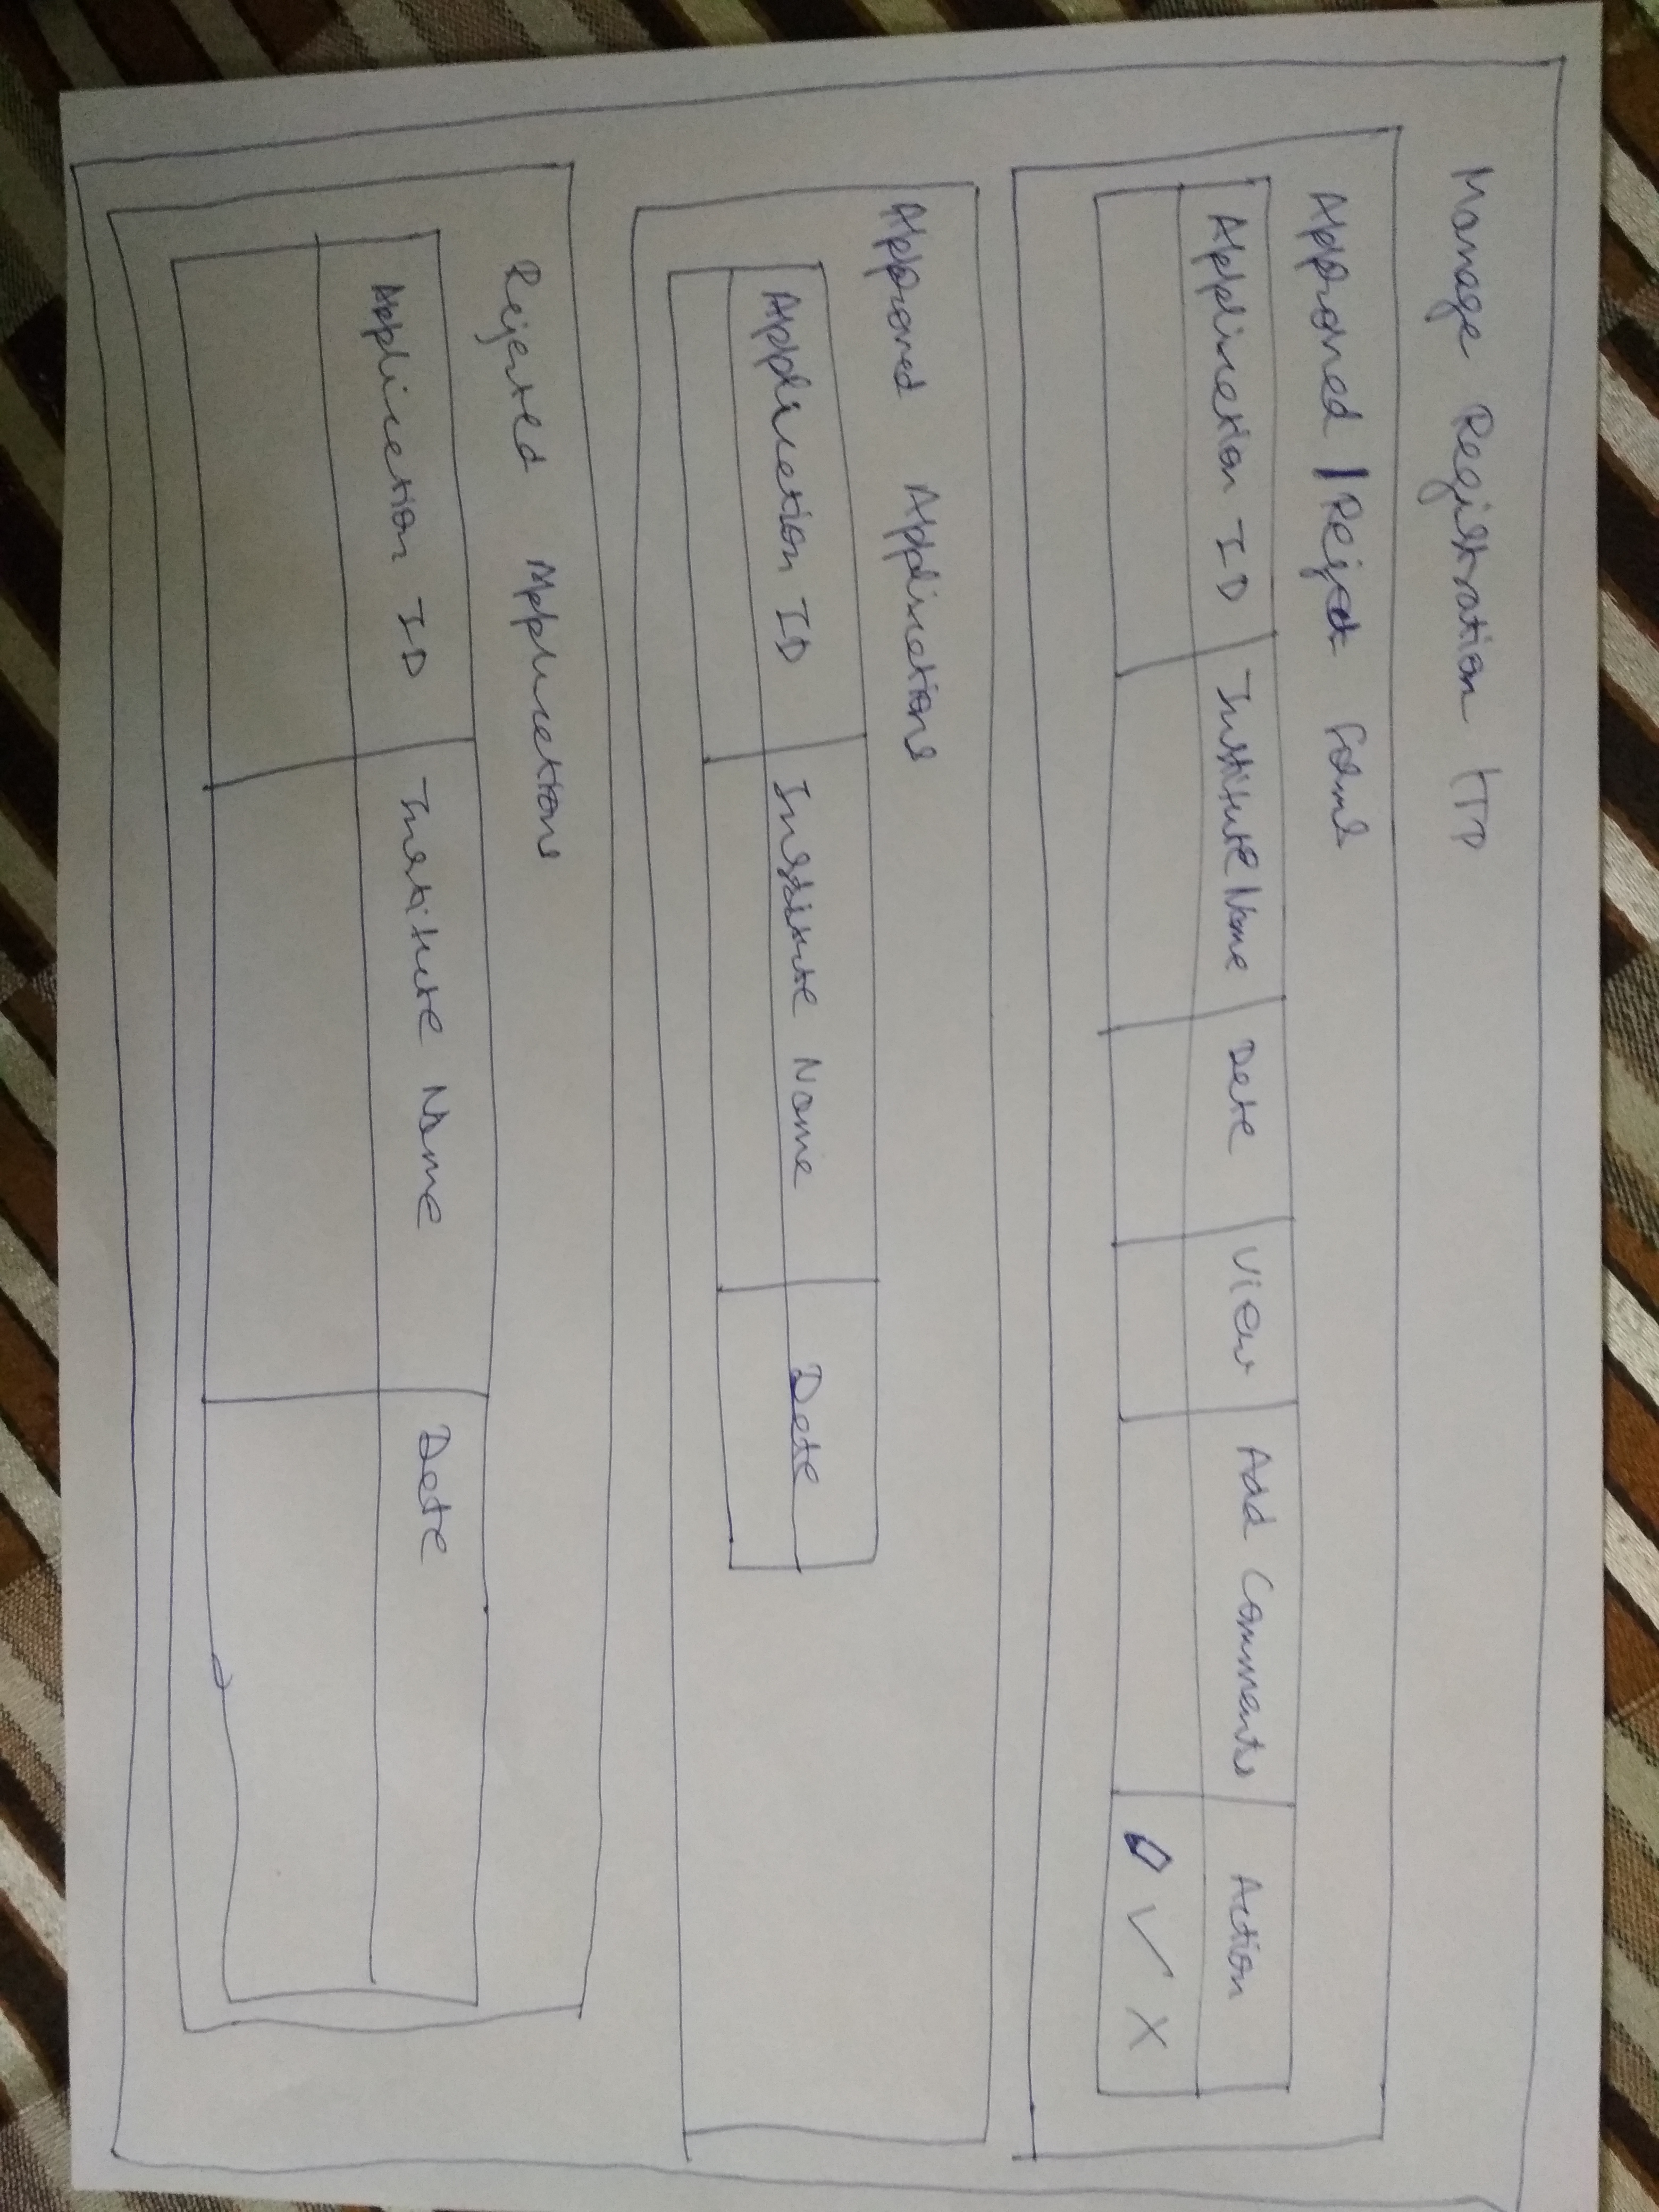 Manage Registration ITP
Approved | Reject Forms
Application ID Institute Name Date View Add Comments Action
Approved Applications
Application ID Institute Name Date
Rejected Applications
Application ID Institute Name Date